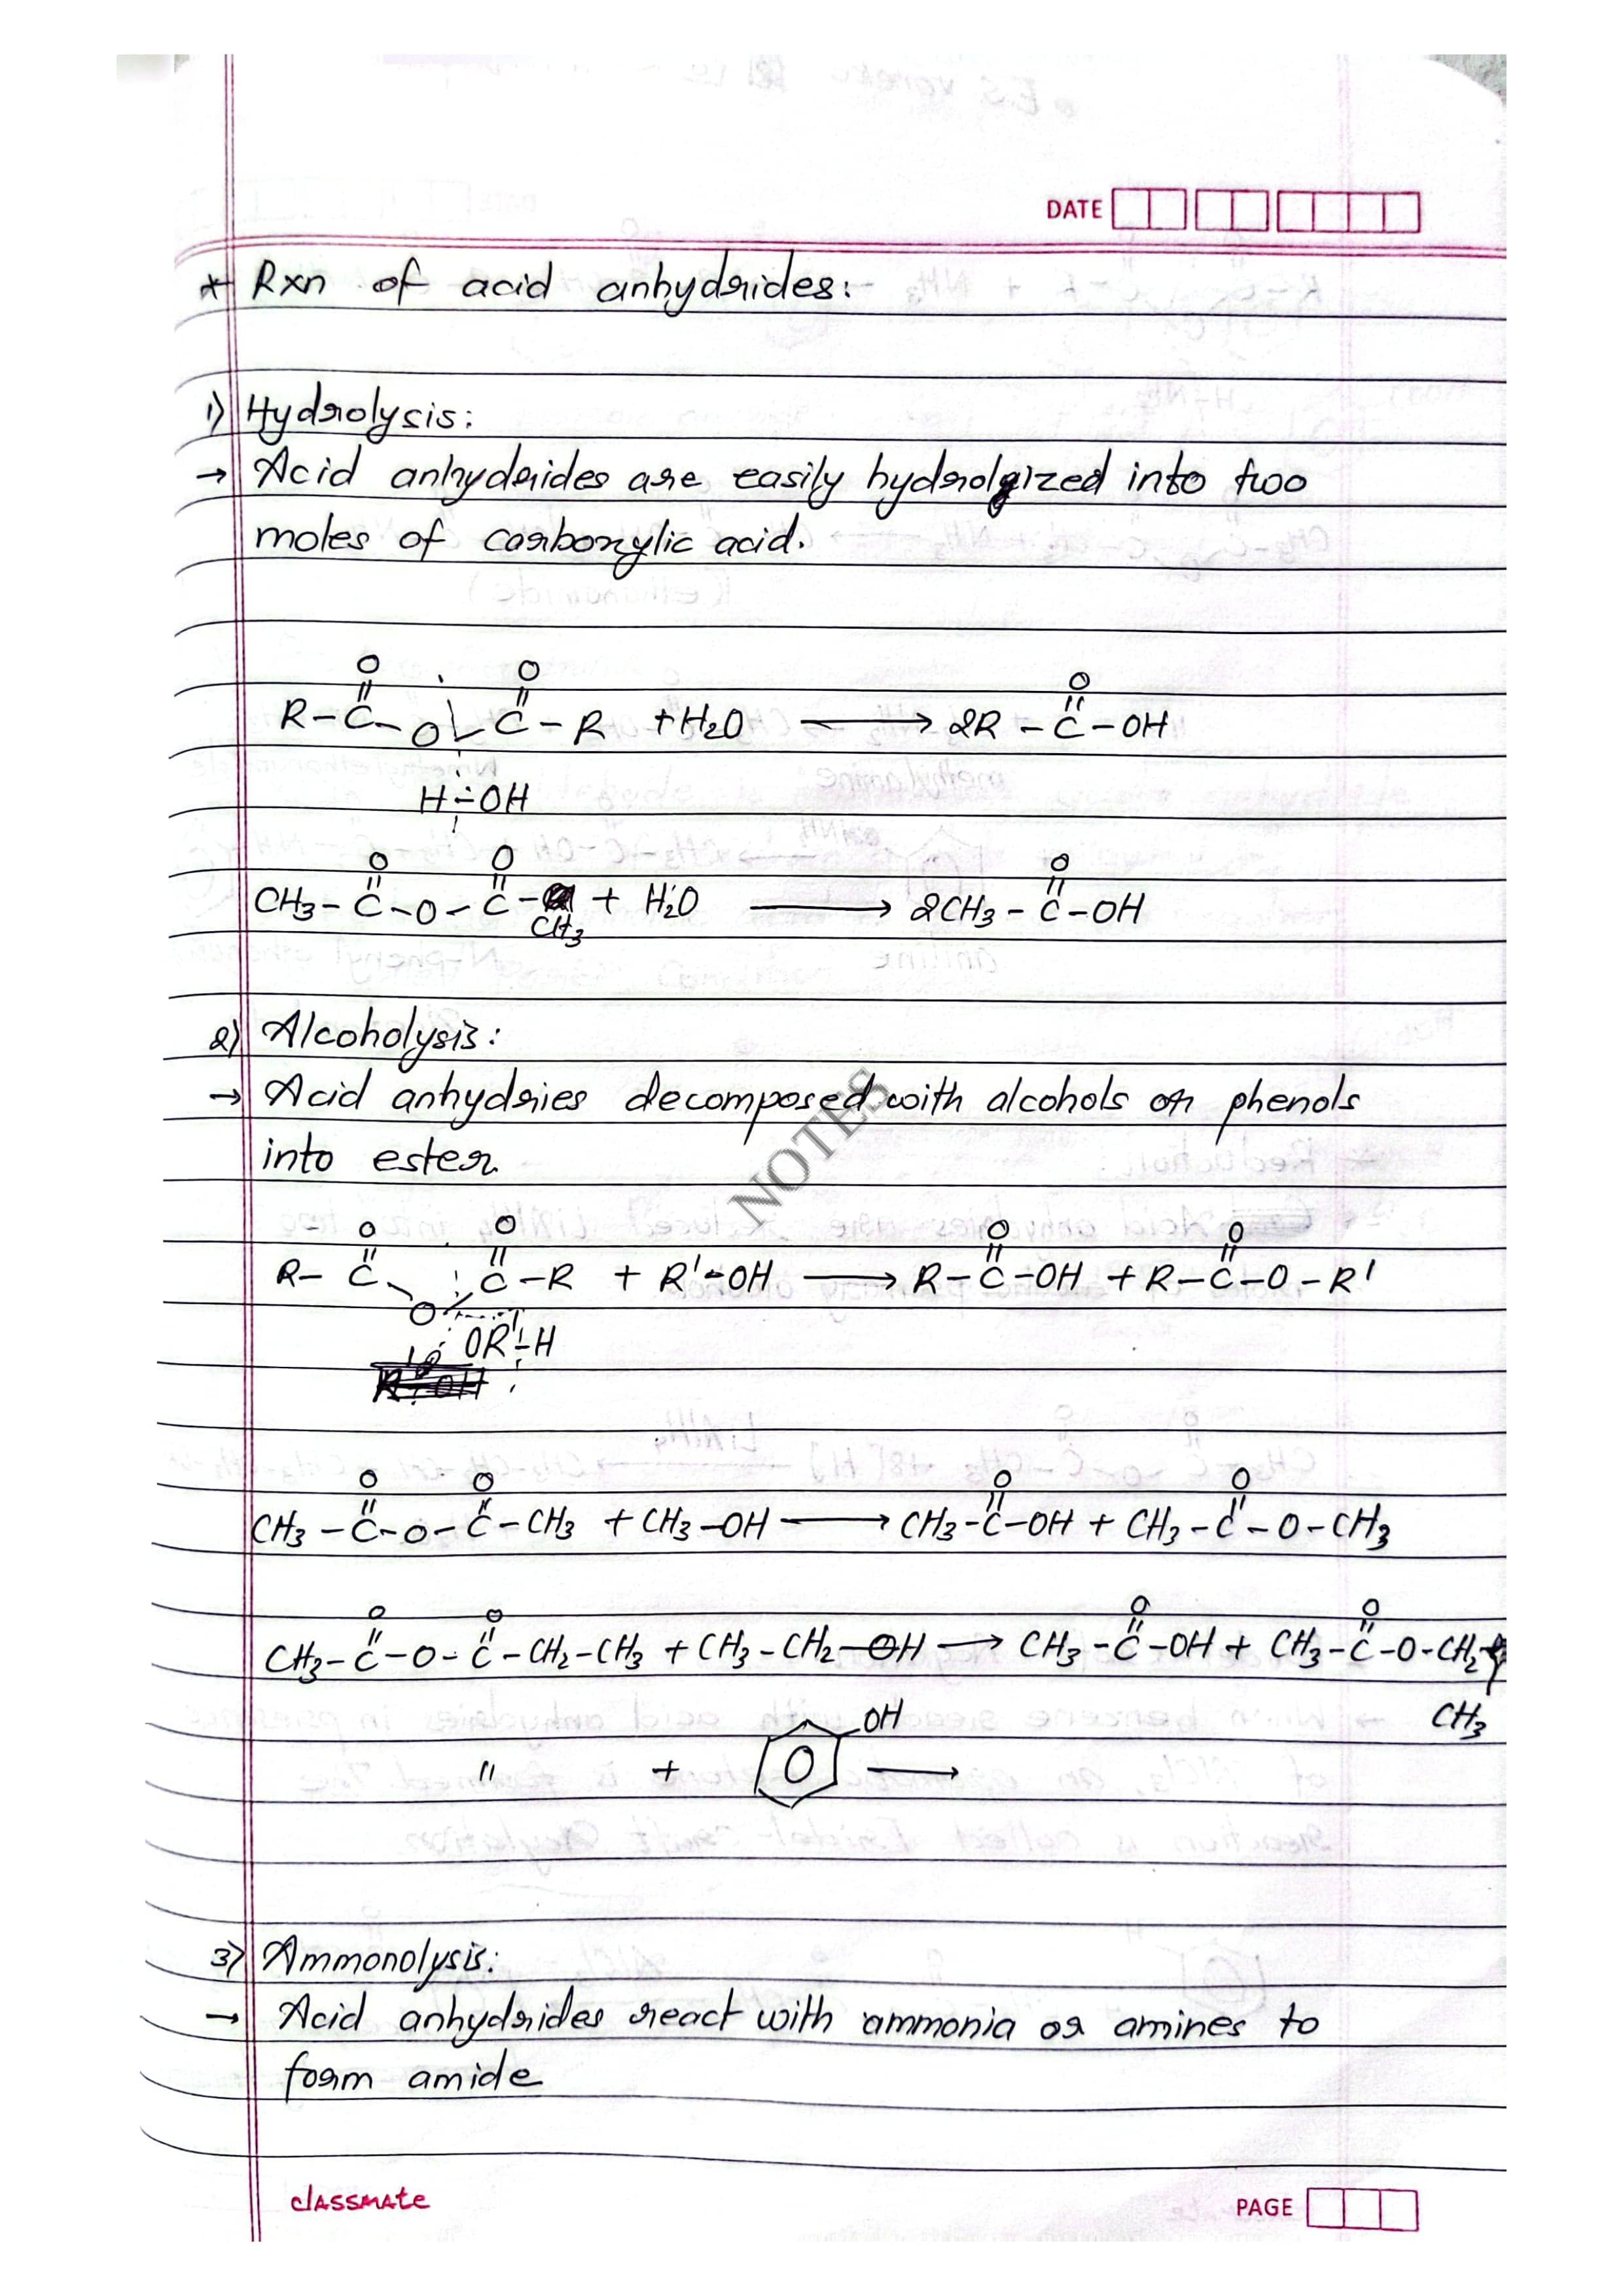 DATE
* Rxn of acid anhydrides:
1) Hydrolysis:
→ Acid anhydrides are easily hydrolyized into two
moles of carboxylic acid.
O O O
R-C-O-C-R +H2O ⟶ 2R-C-OH
H-OH
O O O
CH3-C-O-C- + H2O ⟶ 2CH3-C-OH
CH3
2) Alcoholysis:
→ Acid anhydries decomposed with alcohols or phenols
into ester.
NOTES
O O O O
R-C-O-C-R + R'-OH ⟶ R-C-OH + R-C-O-R'
OR'-H
O O O O
CH3-C-O-C-CH3 + CH3-OH ⟶ CH3-C-OH + CH3-C-O-CH3
O O O O
CH3-C-O-C-CH2-CH3 + CH3-CH2-OH ⟶ CH3-C-OH + CH3-C-O-CH2-
CH3
OH
" + ⟶
3) Ammonolysis:
→ Acid anhydrides react with ammonia or amines to
form amide
classmate
PAGE